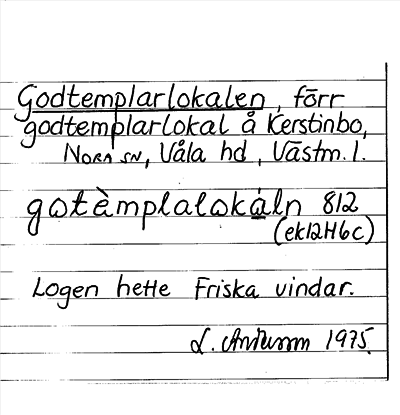 Godtemplarlokalen, förr
godtemplarlokal å Kerstinbo,
NORA SN, Våla hd, Västm. l.
gotèmplalokáln 812
(ek12H6c)
Logen hette Friska vindar.
L. 1975.